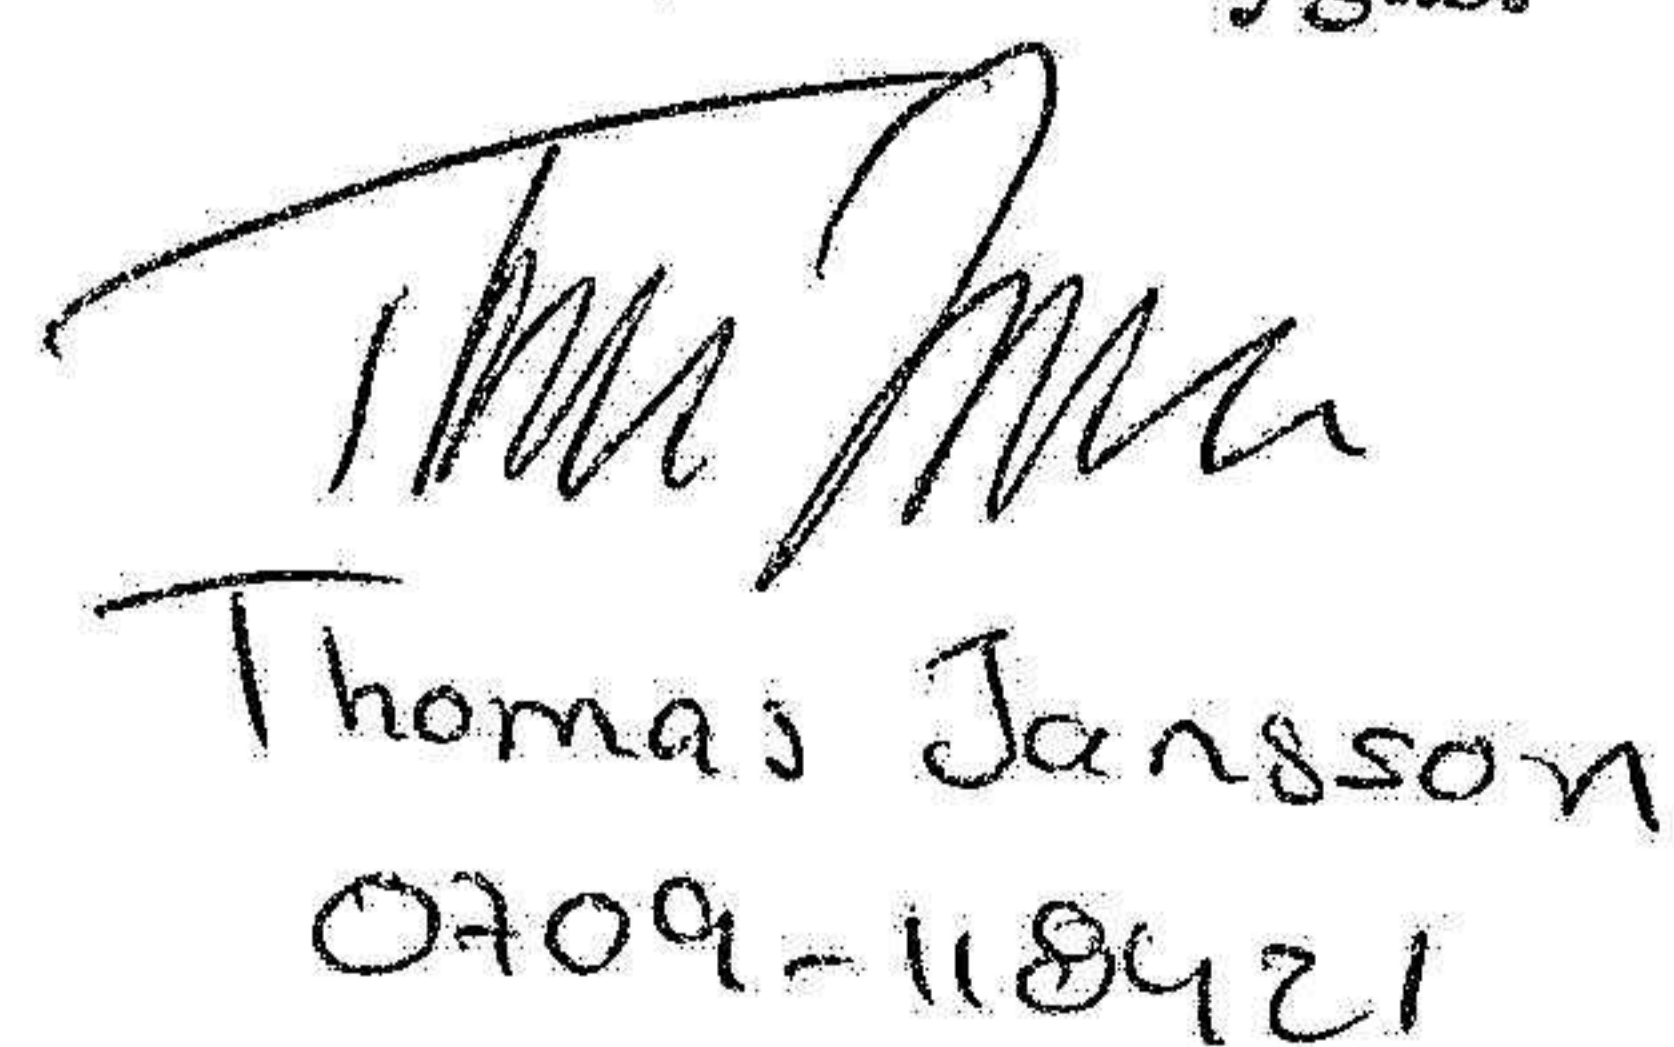 Thomas Jansson
0709-118421